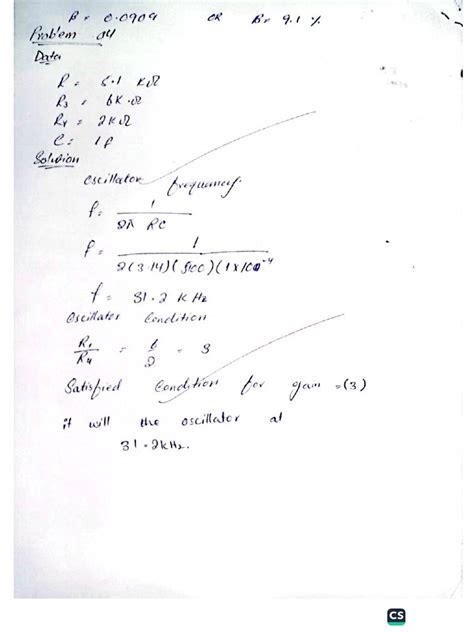 β = 0.0909 OR β = 9.1 %
Problem 04
Data
R = 5.1 KΩ
R3 = 6K Ω
R4 = 2KΩ
C = 1 f
Solution
Oscillator frequency.
f = 1 / 2π RC
f = 1 / 2(3.14)(5100)(1x10-4
f = 31.2 K Hz
Oscillator Condition
R1 / R4 = 6 / 2 = 3
Satisfied Condition for gain = (3)
it will the oscillator at
31.2kHz.
CS